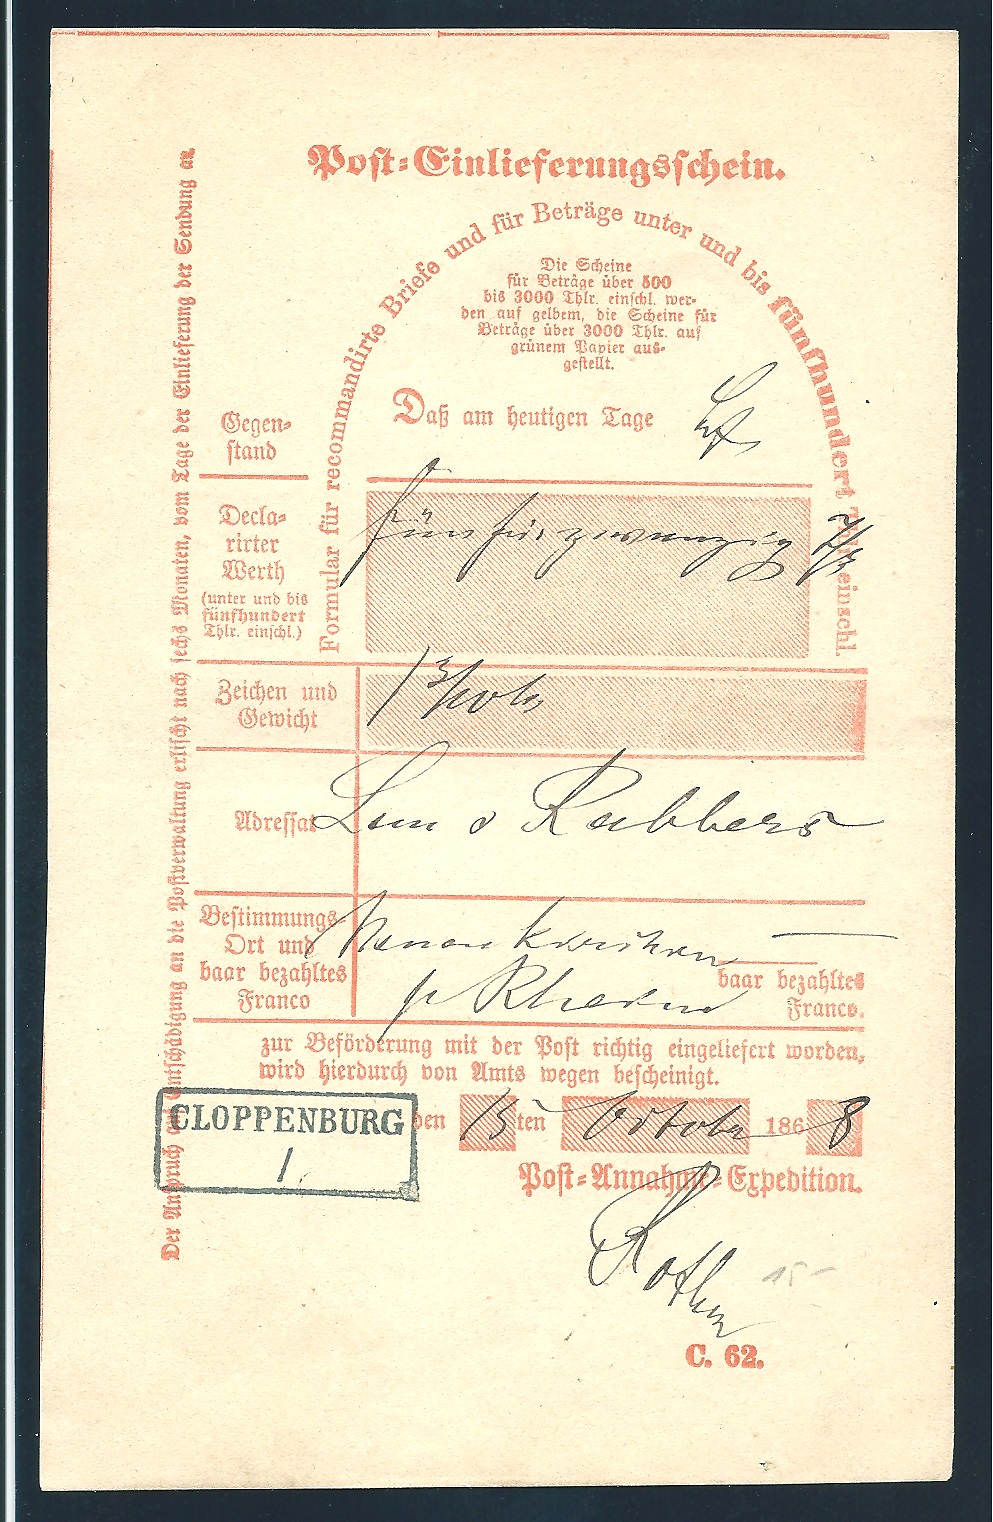 Post-Einlieferungsschein.
Formular für recommandirte Briefe und für Beträge unter und bis fünfhundert Thlr. einschl.
Die Scheine
für Beträge über 500
bis 3000 Thlr. einschl. wer-
den auf gelbem, die Scheine für
Beträge über 3000 Thlr. auf
grünem Papier aus-
gestellt.
Daß am heutigen Tage
Gegen-
stand
Decla-
rirter
Werth
(unter und bis
fünfhundert
Thlr. einschl.)
zwanzig
Zeichen und
Gewicht
Adressat
Rabbers
Bestimmungs-
Ort und
baar bezahltes
Franco
baar bezahltes
Franco.
zur Beförderung mit der Post richtig eingeliefert worden,
wird hierdurch von Amts wegen bescheinigt.
CLOPPENBURG
1
den 15ten October 1868
Post-Annahme-Expedition.
15-
C. 62.
Der Anspruch auf Entschädigung an die Postverwaltung erlischt nach sechs Monaten, vom Tage der Einlieferung der Sendung an.